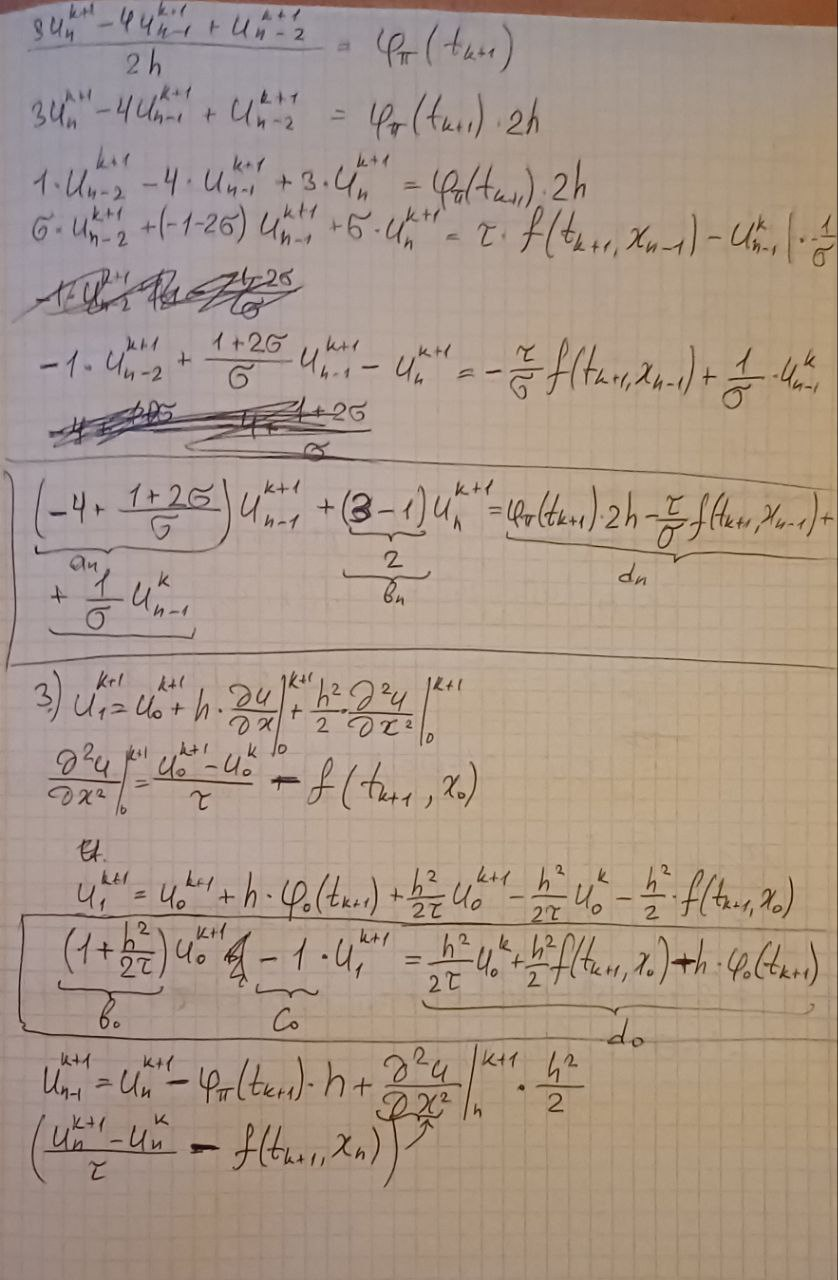 (3u_n^{k+1} - 4u_{n-1}^{k+1} + u_{n-2}^{k+1}) / 2h = φ_π(t_{k+1})
3u_n^{k+1} - 4u_{n-1}^{k+1} + u_{n-2}^{k+1} = φ_π(t_{k+1}) · 2h
1 · u_{n-2}^{k+1} - 4 · u_{n-1}^{k+1} + 3 · u_n^{k+1} = φ_π(t_{k+1}) · 2h
σ · u_{n-2}^{k+1} + (-1-2σ) u_{n-1}^{k+1} + σ · u_n^{k+1} = τ · f(t_{k+1}, x_{n-1}) - u_{n-1}^k | · 1/σ
-1 · u_{n-2}^{k+1} + (1+2σ)/σ u_{n-1}^{k+1} - u_n^{k+1} = -τ/σ f(t_{k+1}, x_{n-1}) + 1/σ · u_{n-1}^k
(-4 + (1+2σ)/σ) u_{n-1}^{k+1} + (3-1) u_n^{k+1} = φ_π(t_{k+1}) · 2h - τ/σ f(t_{k+1}, x_{n-1}) +
a_n 2 b_n d_n
+ 1/σ u_{n-1}^k
3) u_1^{k+1} = u_0^{k+1} + h · ∂u/∂x |_0^{k+1} + h²/2 · ∂²u/∂x² |_0^{k+1}
∂²u/∂x² |_0^{k+1} = (u_0^{k+1} - u_0^k)/τ - f(t_{k+1}, x_0)
u_1^{k+1} = u_0^{k+1} + h · φ_0(t_{k+1}) + h²/2τ u_0^{k+1} - h²/2τ u_0^k - h²/2 · f(t_{k+1}, x_0)
(1 + h²/2τ) u_0^{k+1} - 1 · u_1^{k+1} = h²/2τ u_0^k + h²/2 f(t_{k+1}, x_0) - h · φ_0(t_{k+1})
b_0 c_0 d_0
u_{n-1}^{k+1} = u_n^{k+1} - φ_π(t_{k+1}) · h + ∂²u/∂x² |_n^{k+1} · h²/2
((u_n^{k+1} - u_n^k)/τ - f(t_{k+1}, x_n))